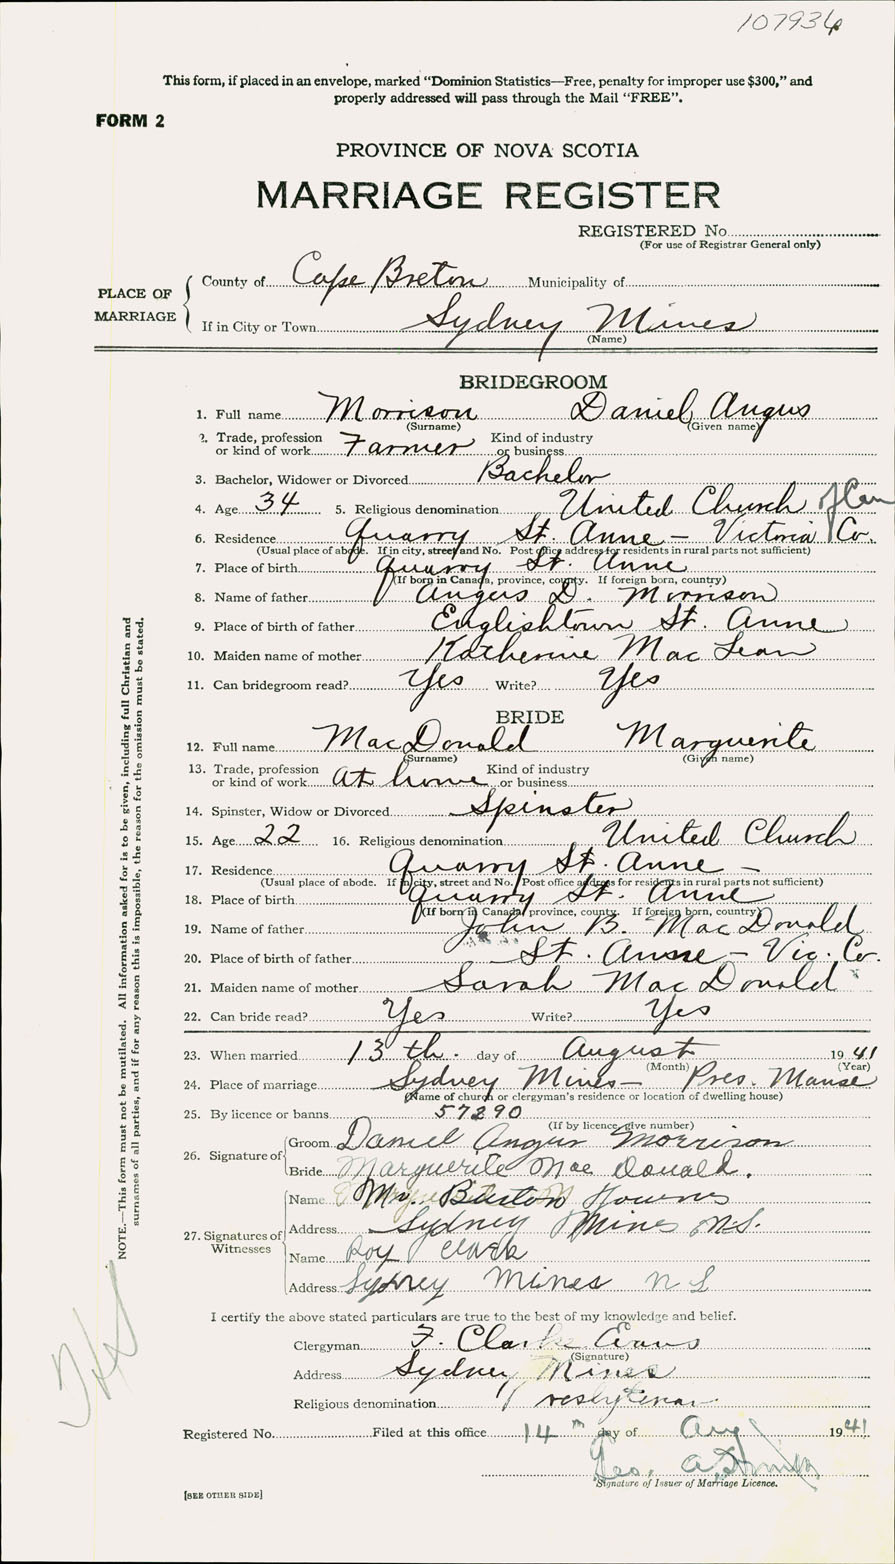 107936
This form, if placed in an envelope, marked “Dominion Statistics—Free, penalty for improper use $300,” and
properly addressed will pass through the Mail “FREE”.
FORM 2
PROVINCE OF NOVA SCOTIA
MARRIAGE REGISTER
REGISTERED No.
(For use of Registrar General only)
PLACE OF MARRIAGE
County of Cape Breton Municipality of
If in City or Town Sydney Mines
(Name)
BRIDEGROOM
1. Full name Morrison Daniel Angus
(Surname) (Given name)
2. Trade, profession or kind of work Farmer Kind of industry or business
3. Bachelor, Widower or Divorced Bachelor
4. Age 34 5. Religious denomination United Church of Can
6. Residence Quarry St. Anne - Victoria Co.
(Usual place of abode. If in city, street and No. Post office address for residents in rural parts not sufficient)
7. Place of birth Quarry St. Anne
(If born in Canada, province, county. If foreign born, country)
8. Name of father Angus D. Morrison
9. Place of birth of father Englishtown St. Anne
10. Maiden name of mother Katherine MacLean
11. Can bridegroom read? Yes Write? Yes
BRIDE
12. Full name MacDonald Marguerite
(Surname) (Given name)
13. Trade, profession or kind of work At home Kind of industry or business
14. Spinster, Widow or Divorced Spinster
15. Age 22 16. Religious denomination United Church
17. Residence Quarry St. Anne -
(Usual place of abode. If in city, street and No. Post office address for residents in rural parts not sufficient)
18. Place of birth Quarry St. Anne
(If born in Canada, province, county. If foreign born, country)
19. Name of father John B. MacDonald
20. Place of birth of father St. Anne - Vic. Co.
21. Maiden name of mother Sarah MacDonald
22. Can bride read? Yes Write? Yes
23. When married 13th. day of August 1941
(Month) (Year)
24. Place of marriage Sydney Mines - Pres. Manse
(Name of church or clergyman's residence or location of dwelling house)
25. By licence or banns 57290
(If by licence, give number)
26. Signature of
Groom Daniel Angus Morrison
Bride Marguerite Mac Donald.
27. Signatures of Witnesses
Name Mrs. Burton
Address Sydney Mines N.S.
Name Roy Clark
Address Sydney Mines N S
I certify the above stated particulars are true to the best of my knowledge and belief.
Clergyman F. Clarke Evans
(Signature)
Address Sydney Mines
Religious denomination Presbyterian
Registered No. Filed at this office 14th day of Aug 1941
Geo. A.
Signature of Issuer of Marriage Licence.
[SEE OTHER SIDE]
NOTE.—This form must not be mutilated. All information asked for is to be given, including full Christian and
surnames of all parties, and if for any reason this is impossible, the reason for the omission must be stated.